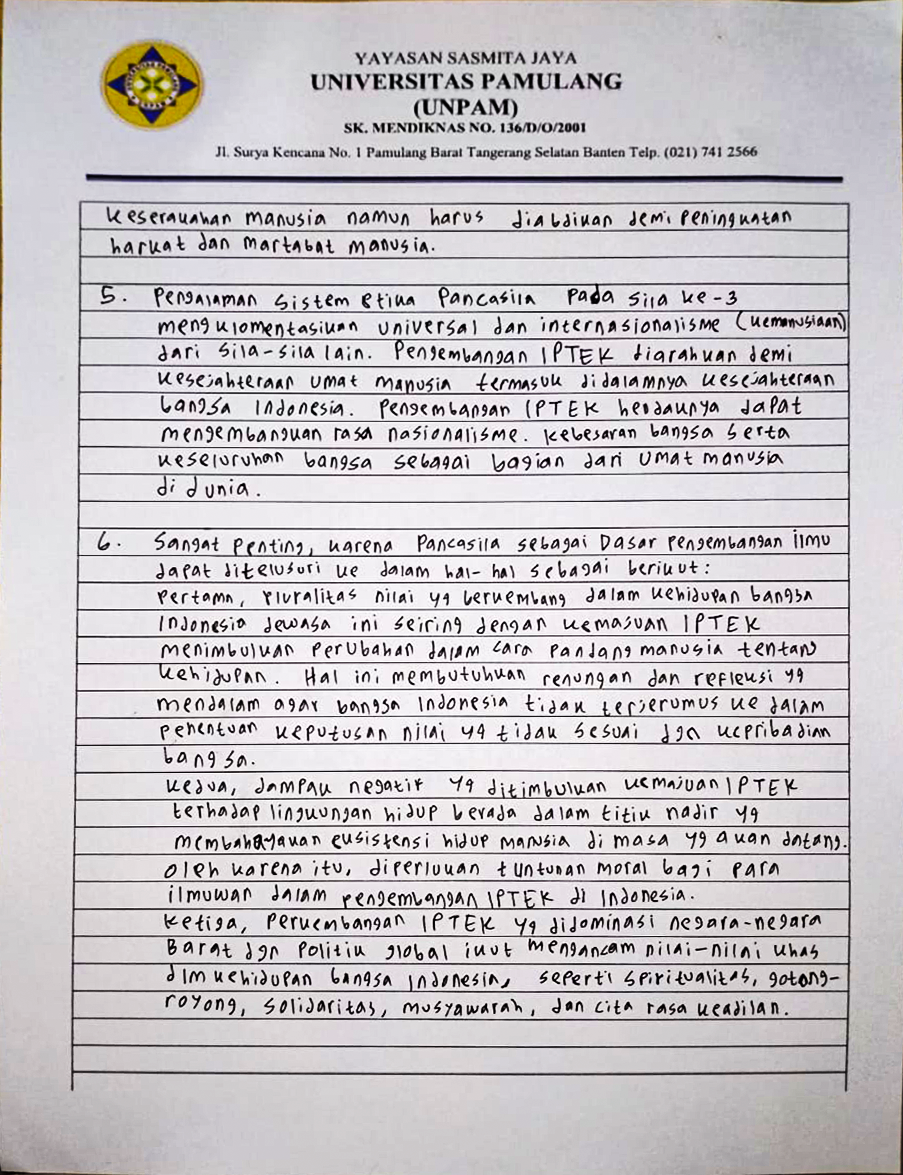 YAYASAN SASMITA JAYA
UNIVERSITAS PAMULANG
(UNPAM)
SK. MENDIKNAS NO. 136/D/O/2001
Jl. Surya Kencana No. 1 Pamulang Barat Tangerang Selatan Banten Telp. (021) 741 2566
Keserakahan manusia namun harus diabdikan demi peningkatan
harkat dan martabat manusia.
5. Pengalaman Sistem Etika Pancasila Pada Sila ke-3
mengklomentasikan universal dan internasionalisme (kemanusiaan)
dari Sila-Sila lain. Pengembangan IPTEK diarahkan demi
Kesejahteraan umat manusia termasuk didalamnya kesejahteraan
bangsa Indonesia. Pengembangan IPTEK hendaknya dapat
mengembangkan rasa nasionalisme. Kebesaran bangsa serta
keseluruhan bangsa sebagai bagian dari umat manusia
di dunia.
6. Sangat penting, karena Pancasila sebagai Dasar pengembangan ilmu
dapat ditelusuri ke dalam hal-hal sebagai berikut:
Pertama, Pluralitas nilai yg berkembang dalam kehidupan bangsa
Indonesia dewasa ini seiring dengan kemajuan IPTEK
menimbulkan perubahan dalam cara pandang manusia tentang
kehidupan. Hal ini membutuhkan renungan dan refleksi yg
mendalam agar bangsa Indonesia tidak terjerumus ke dalam
penentuan keputusan nilai yg tidak sesuai dgn kepribadian
bangsa.
Kedua, dampak negatif yg ditimbulkan kemajuan IPTEK
terhadap lingkungan hidup berada dalam titik nadir yg
membahayakan eksistensi hidup manusia di masa yg akan datang.
oleh karena itu, diperlukan tuntunan moral bagi para
ilmuwan dalam pengembangan IPTEK di Indonesia.
Ketiga, Perkembangan IPTEK yg didominasi negara-negara
Barat dgn Politik global ikut mengancam nilai-nilai khas
dlm kehidupan bangsa Indonesia, seperti spiritualitas, gotong-
royong, solidaritas, musyawarah, dan cita rasa keadilan.